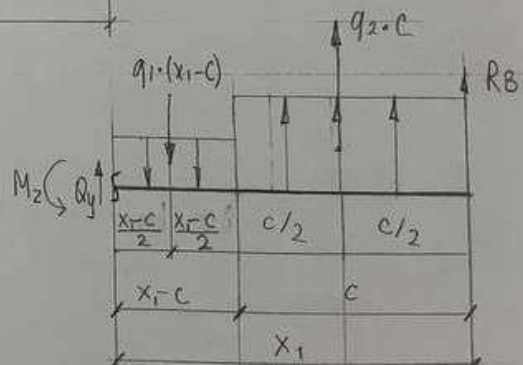 q2·C
q1·(x1-C)
RB
Mz Qy
x1-C/2 x1-C/2 C/2 C/2
x1-C C
x1